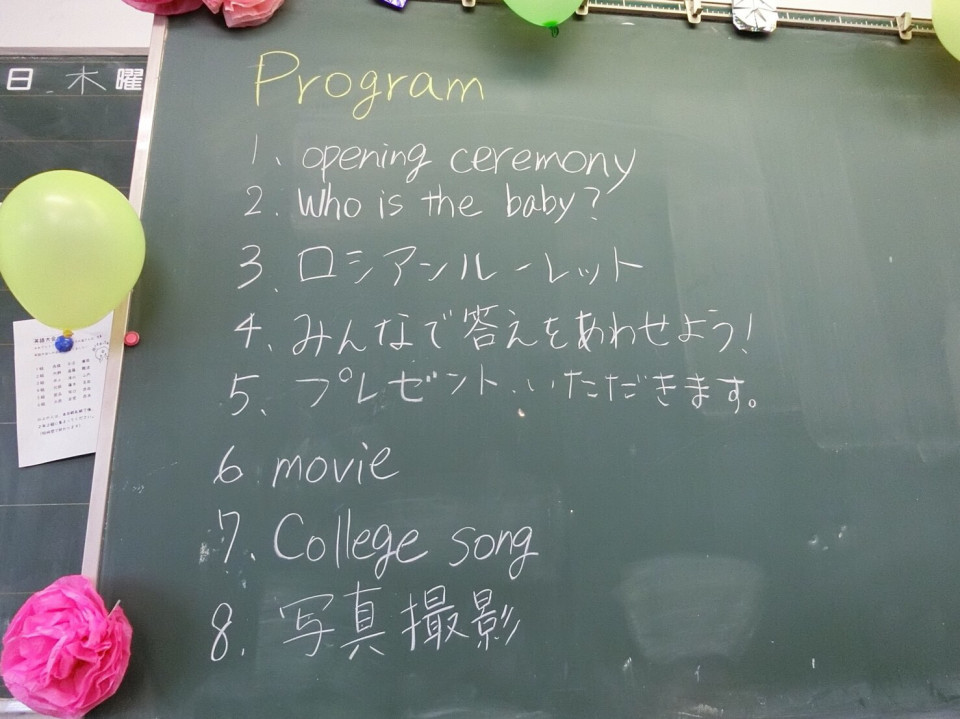 日 木曜
Program
1、opening ceremony
2. Who is the baby?
3. ロシアンルーレット
4. みんなで答えをあわせよう!
5、プレゼント、いただきます。
6 movie
7. College song
8. 写真撮影